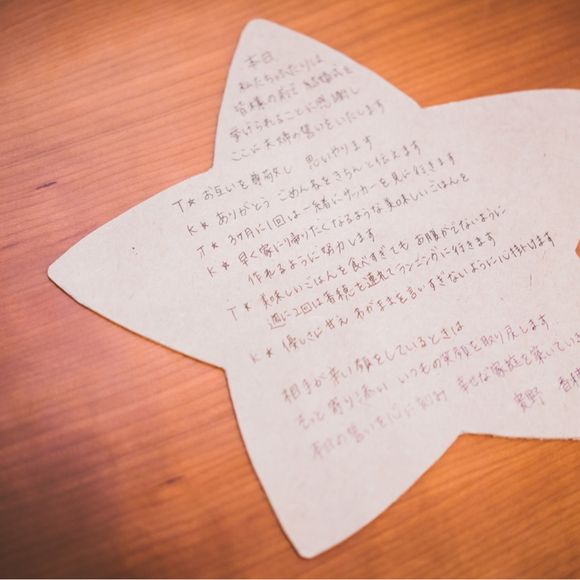 本日
私たちふたりは
皆様の前で 結婚式を
挙げられることに感謝し
ここに夫婦の誓いをいたします
T★ お互いを尊敬し 思いやります
K★ ありがとう ごめんねをきちんと伝えます
T★ 3ヶ月に1回は一緒にサッカーを見に行きます
K★ 早く家に帰りたくなるような美味しいごはんを
作れるように努力します
T★ 美味しいごはんを食べすぎても お腹がでないように
週に2回は香穂を連れてランニングに行きます
K★ 優しさに甘え わがままを言いすぎないように心掛けます
相手が辛い顔をしているときは
そっと寄り添い いつもの笑顔を取り戻します
本日の誓いを心に刻み 幸せな家庭を築いていき